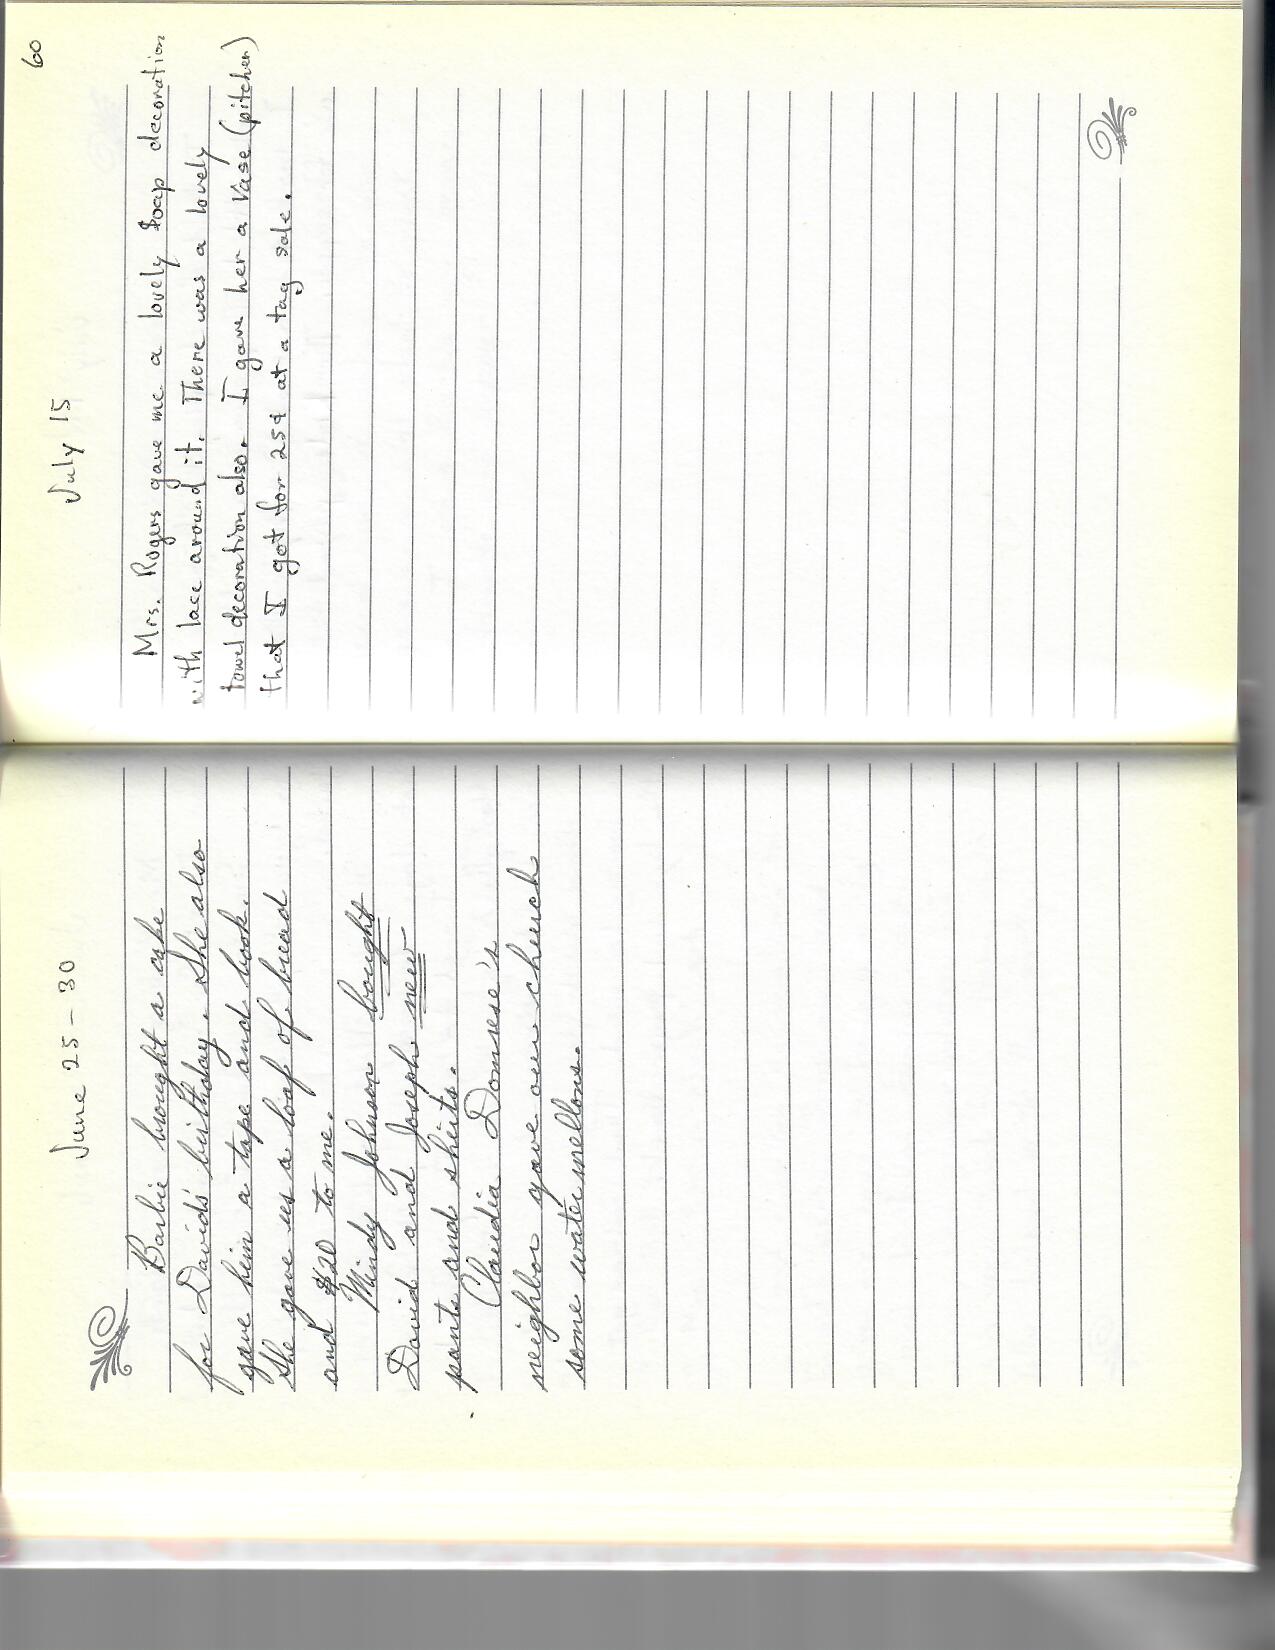 June 25-30
Barbie brought a cake
for David's birthday. She also
gave him a tape and book.
She gave us a loaf of bread
and $20 to me.
Mindy Johnson bought
David and Joseph new
pants and shirts.
Claudia Domrese's
neighbor gave our church
some water mellons.
60
July 15
Mrs. Rogers gave me a lovely soap decoration
with lace around it. There was a lovely
towel decoration also. I gave her a vase (pitcher)
that I got for 25¢ at a tag sale.